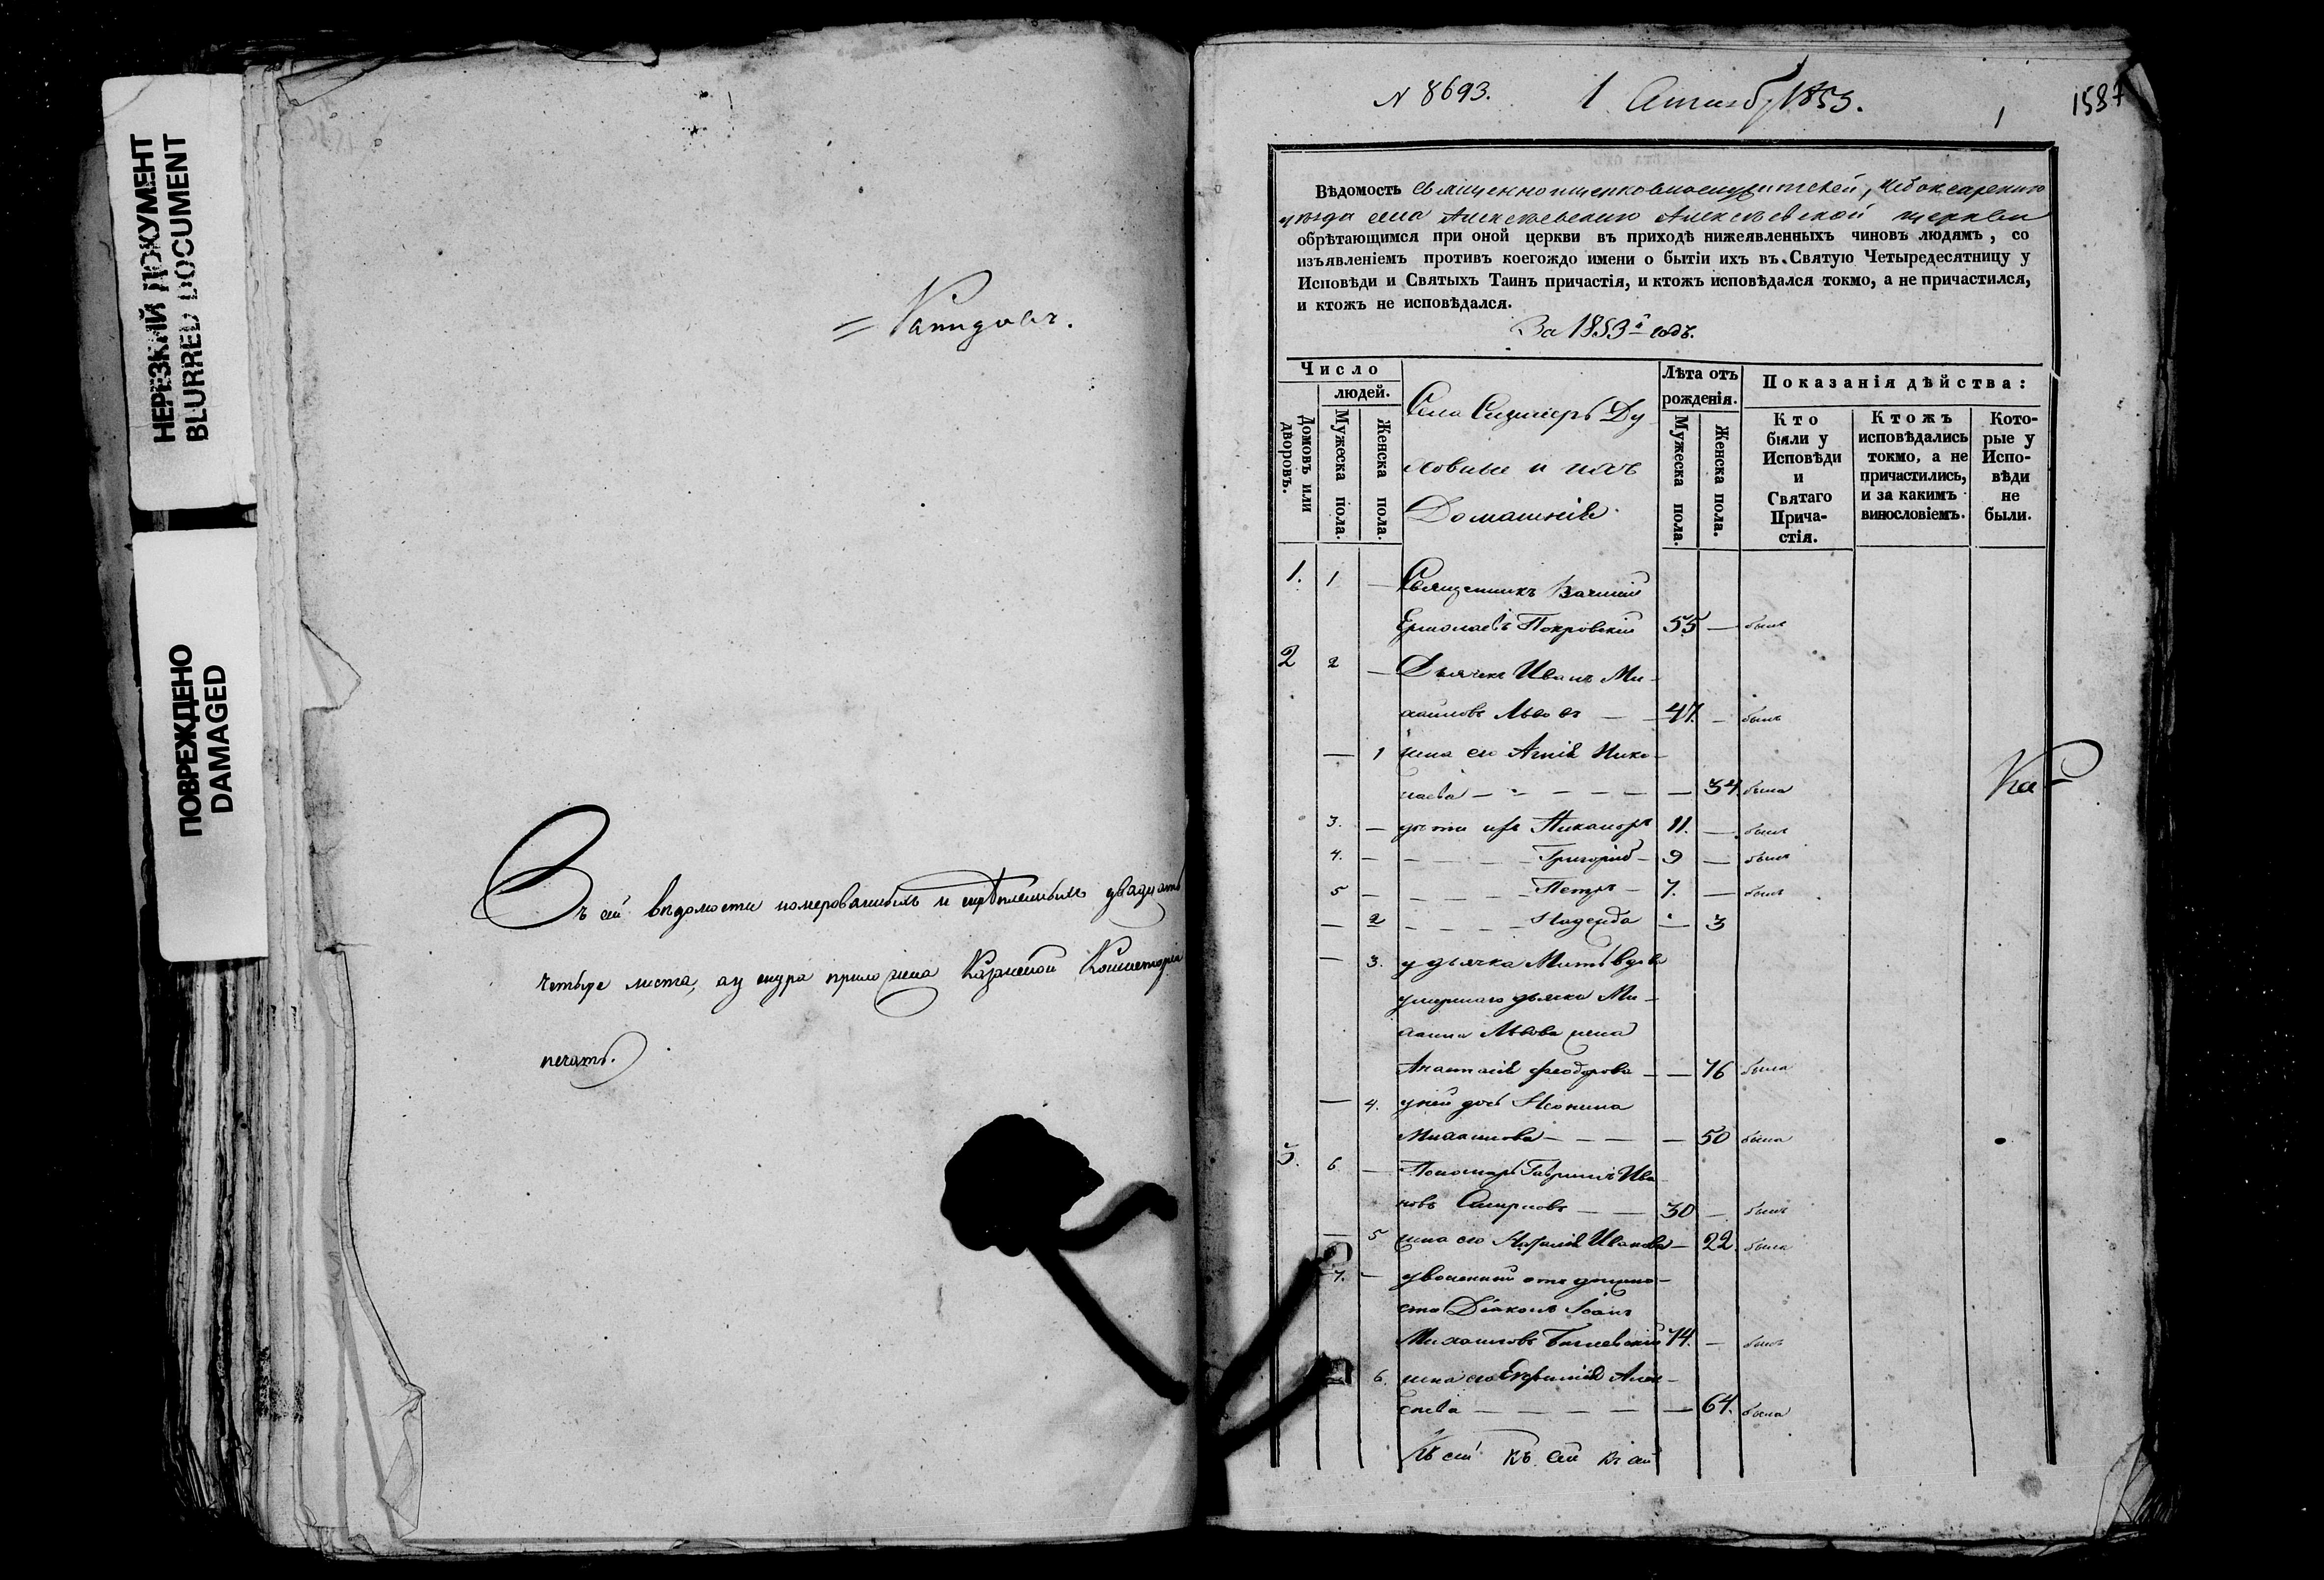 НЕРЕЗКИЙ ДОКУМЕНТ
BLURRED DOCUMENT
ПОВРЕЖДЕНО
DAMAGED
Въ сей вѣдомости номерованныхъ и скрѣпленныхъ двадцать
четыре листа, а у шнура приложена Казенной Консисторіи
печать.
N 8693. 1 1853. 1 1587
Вѣдомость священноцерковнослужителей, Чебоксарскаго
уѣзда села Алексѣевскаго Алексѣевской церкви
обрѣтающимся при оной церкви въ приходѣ нижеявленныхъ чиновъ людямъ, со
изъявленіемъ противъ коегождо имени о бытіи ихъ въ Святую Четыредесятницу у
Исповѣди и Святыхъ Таинъ причастія, и ктожъ исповѣдался токмо, а не причастился,
и ктожъ не исповѣдался.
За 1853й годъ.
Число
людей.
Домовъ или дворовъ.
Мужеска пола.
Женска пола.
Села Ду
ховные и ихъ
Домашніе
Лѣта отъ рожденія.
Мужеска пола.
Женска пола.
Показанія дѣйства:
Кто были у Исповѣди и Святаго Причастія.
Ктожъ исповѣдались токмо, а не причастились, и за какимъ винословіемъ.
Которые у Исповѣди не были.
1. 1 — Священникъ
Ермолаевъ Покровскій 55 — былъ
2 2 — Дьячекъ Иванъ Ми-
хаиловъ Львовъ — 47. — былъ
— 1 жена его Агнія Нико-
лаева — — — 34. была
3. — дѣти ихъ Никаноръ 11. — былъ
4. — — — Григорій — 9 — былъ
5 — — — Петръ — 7. — былъ
— 2 — — Надежда — 3
— 3. у дьячка Мать вдова
умершаго дьячка Ми-
хаила Львова жена
Анастасія Феодорова — — 76 была
— 4. у ней дочь
Михаилова — — — 50 была
3. 6 — Пономарь Гавріилъ Ива
новъ Смирновъ — — 30 — былъ
— 5 жена его Наталія Иванова — 22. была
7. — уволенный отъ должно-
сти Діаконъ Іоаннъ
Михаиловъ 74. — былъ
6. жена его Евфимія Алек-
сеева — — — 64. была
Къ сей Къ сей Къ сей
Ка-